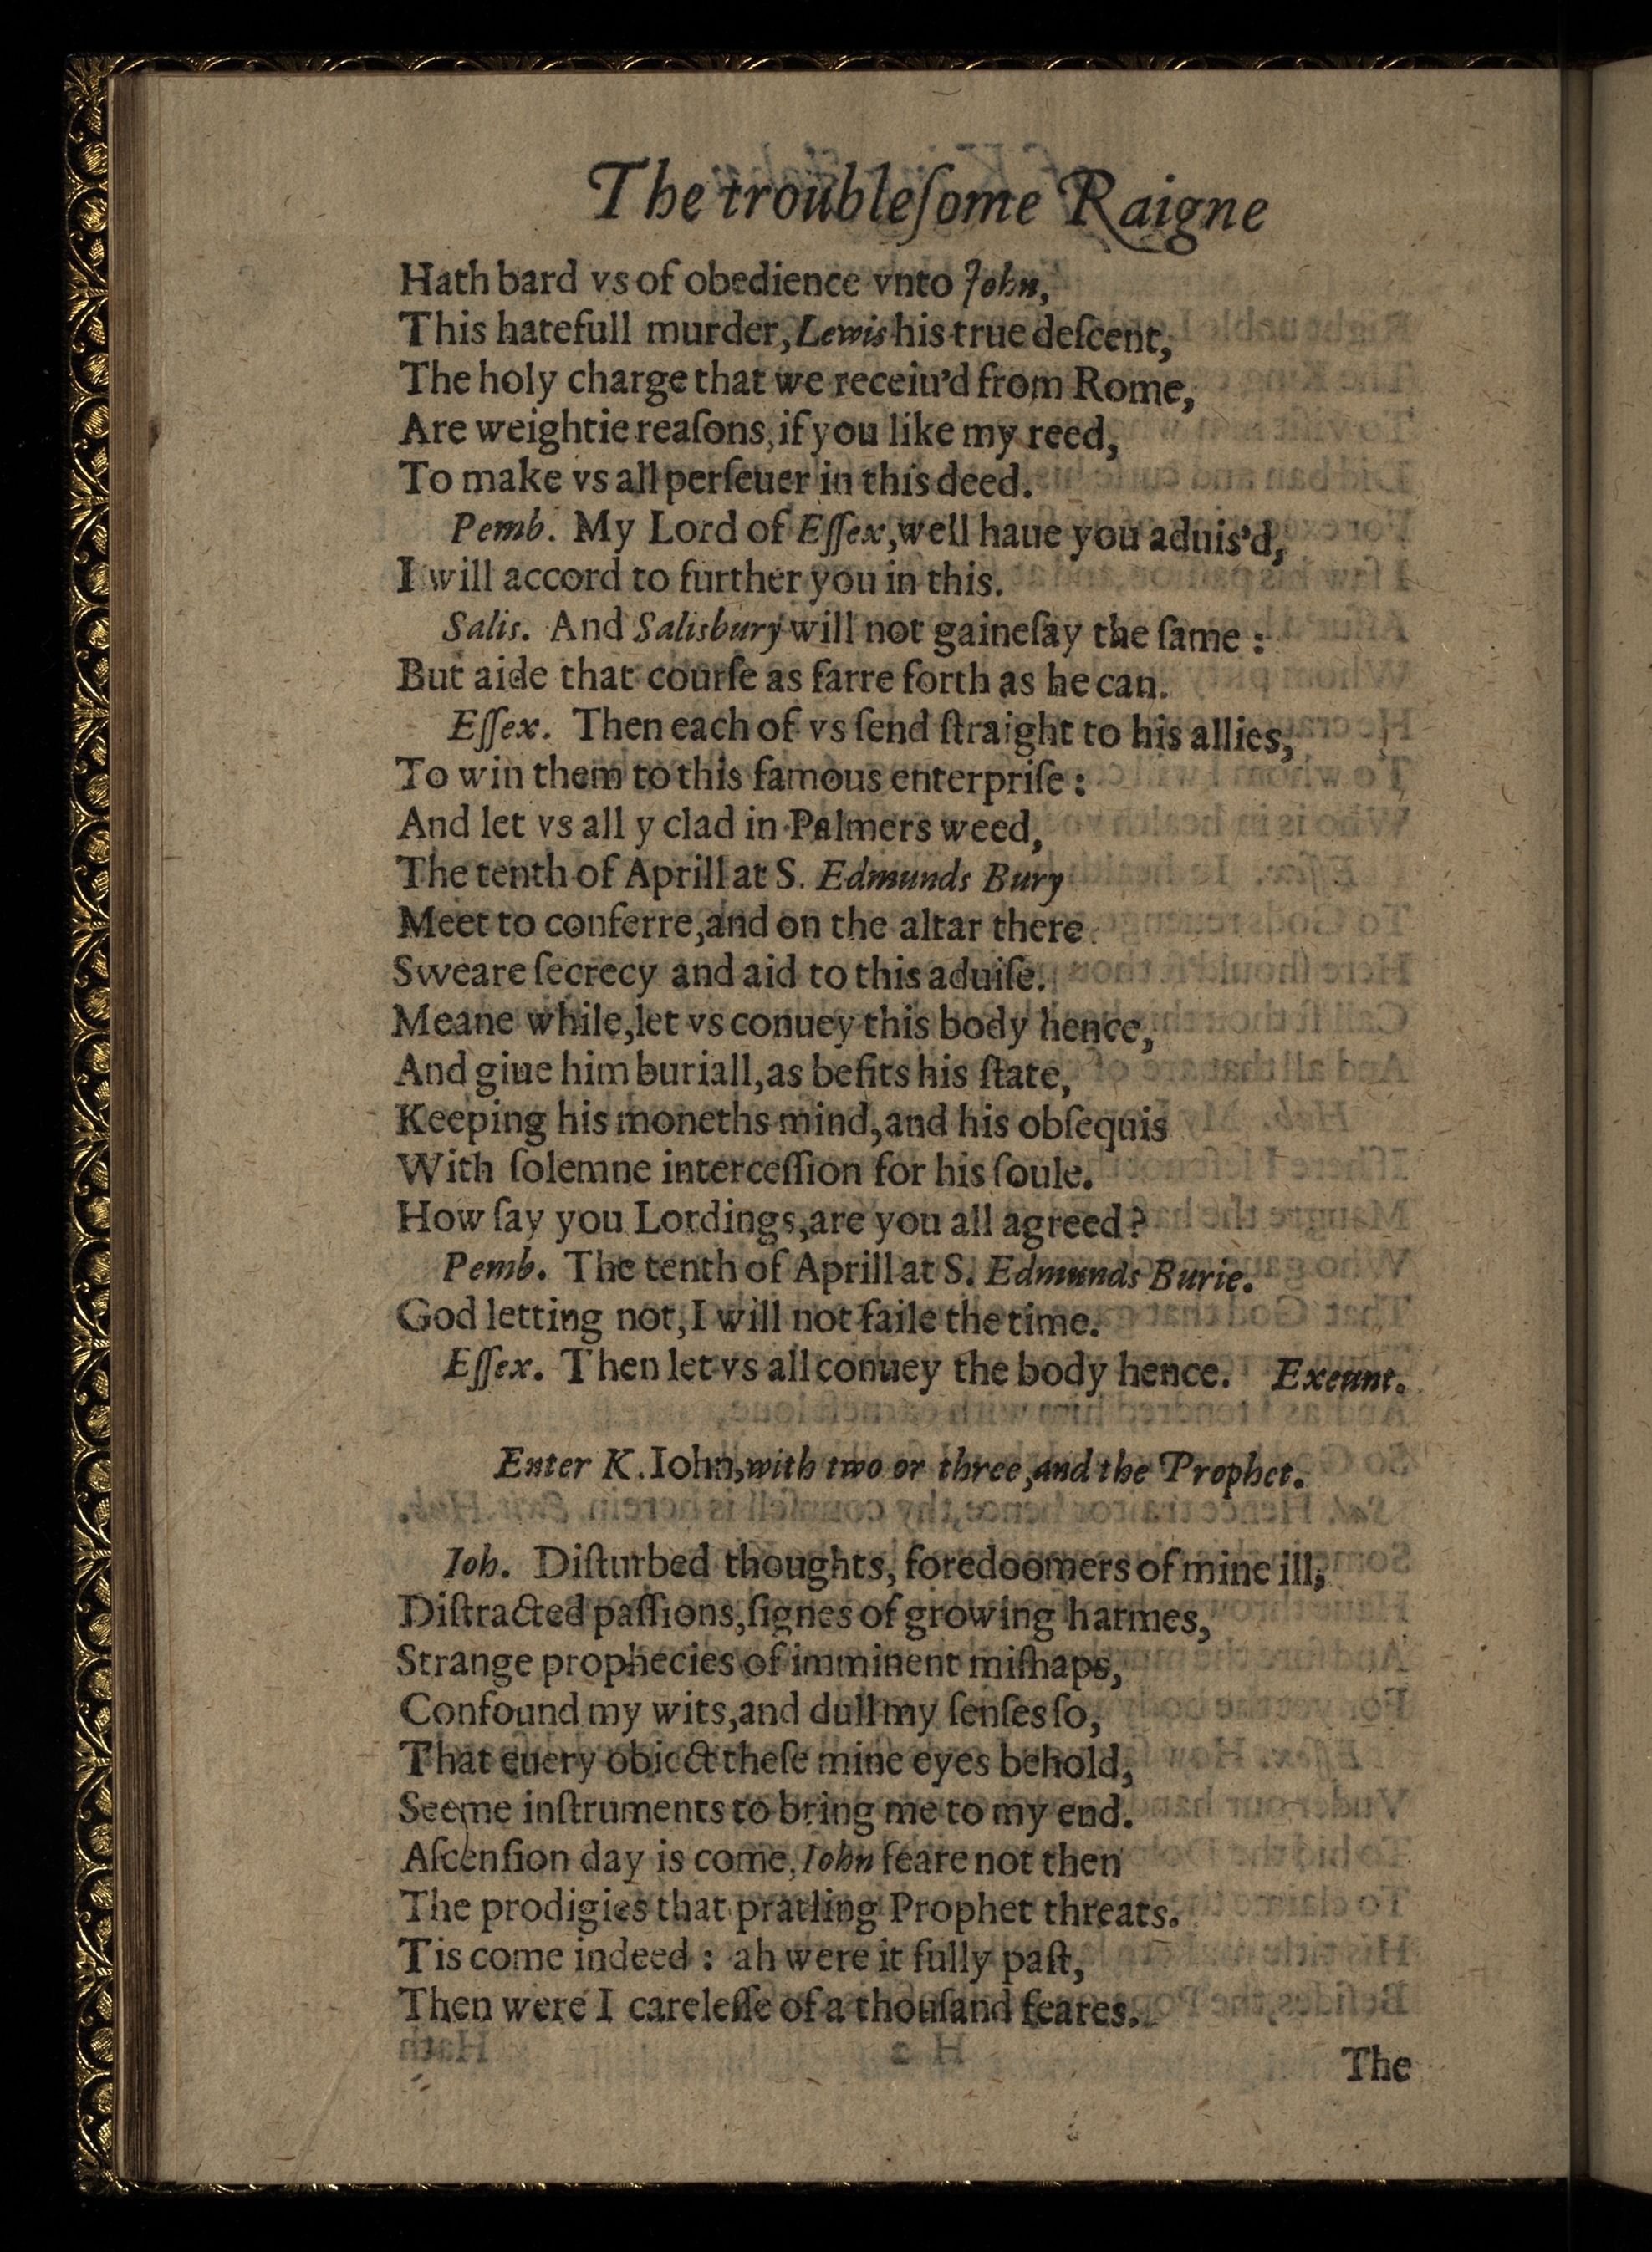 The troubleſome Raigne
Hath bard vs of obedience vnto John,
This hatefull murder, Lewis his true deſcent,
The holy charge that we receiu'd from Rome,
Are weightie reaſons, if you like my reed,
To make vs all perſeuer in this deed.
Pemb. My Lord of Eſſex, well haue you aduis'd,
I will accord to further you in this.
Salis. And Salisbury will not gaineſay the ſame :
But aide that courſe as farre forth as he can.
Eſſex. Then each of vs ſend ſtraight to his allies,
To win them to this famous enterpriſe :
And let vs all y clad in Palmers weed,
The tenth of Aprill at S. Edmunds Bury
Meet to conferre, and on the altar there
Sweare ſecrecy and aid to this aduiſe.
Meane while, let vs conuey this body hence,
And giue him buriall, as befits his ſtate,
Keeping his moneths mind, and his obſequis
With ſolemne interceſſion for his ſoule.
How ſay you Lordings, are you all agreed?
Pemb. The tenth of Aprill at S. Edmunds Burie.
God letting not, I will not faile the time.
Eſſex. Then let vs all conuey the body hence. Exeunt.
Enter K. Iohn, with two or three, and the Prophet.
Ioh. Diſturbed thoughts, foredoomers of mine ill,
Diſtracted paſſions, ſignes of growing harmes,
Strange prophecies of imminent miſhaps,
Confound my wits, and dull my ſenſes ſo,
That euery obiect theſe mine eyes behold,
Seeme inſtruments to bring me to my end.
Aſcenſion day is come, Iohn feare not then
The prodigies that pratling Prophet threats.
Tis come indeed : ah were it fully paſt,
Then were I careleſſe of a thouſand feares.
The